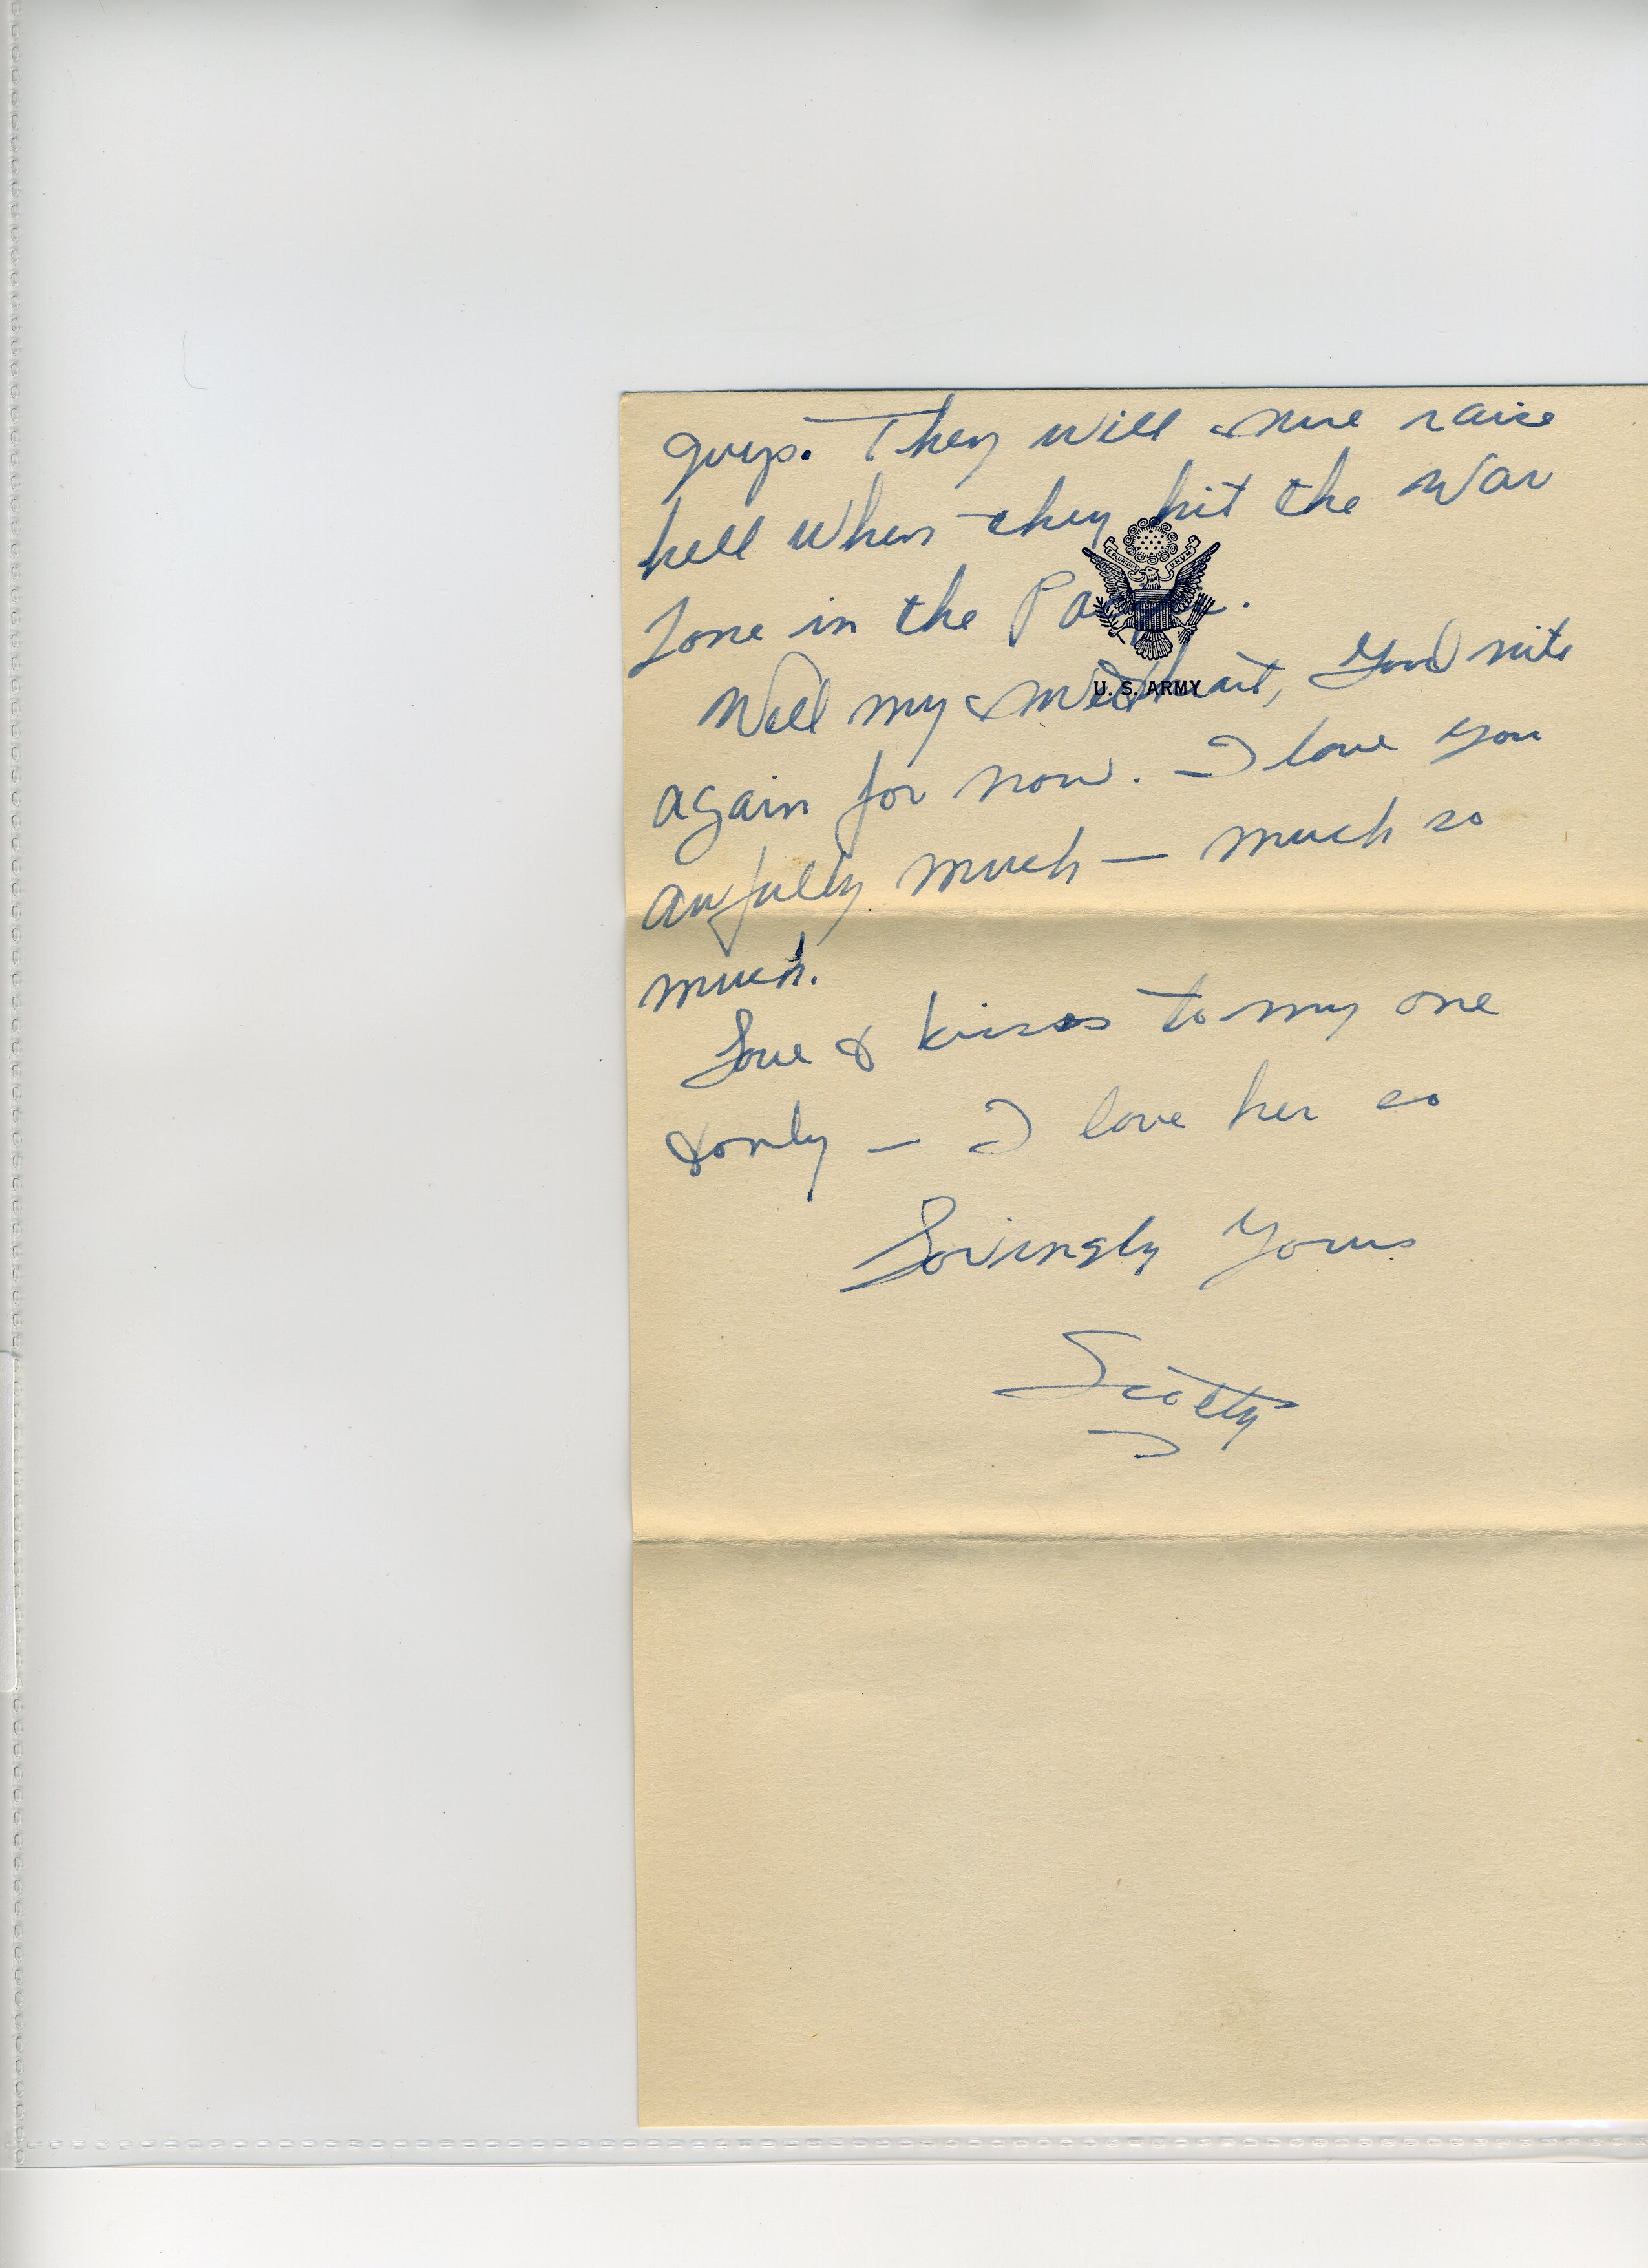 guys. They will sure raise
hell when they hit the War
Zone in the
E PLURIBUS UNUM
U. S. ARMY
Well my sweetheart, Good nite
again for now. - I love you
awfully much — much so
much.
Love & kisses to my one
& only — I love her so
Lovingly Yours
Scotty